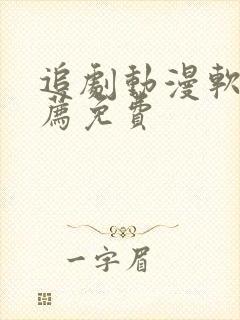 追劇動漫軟
薦免費
一字眉